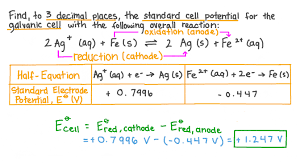 Find, to 3 decimal places, the standard cell potential for the
galvanic cell with the following overall reaction:
oxidation (anode)
2 Ag⁺ (aq) + Fe (s) ⇌ 2 Ag (s) + Fe²⁺ (aq)
reduction (cathode)
Half-Equation Ag⁺ (aq) + e⁻ → Ag (s) Fe²⁺ (aq) + 2e⁻ → Fe (s)
Standard Electrode Potential, E° (V) + 0.7996 - 0.447
E°cell = E°red, cathode - E°red, anode
= + 0.7996 V - (-0.447 V) = + 1.247 V